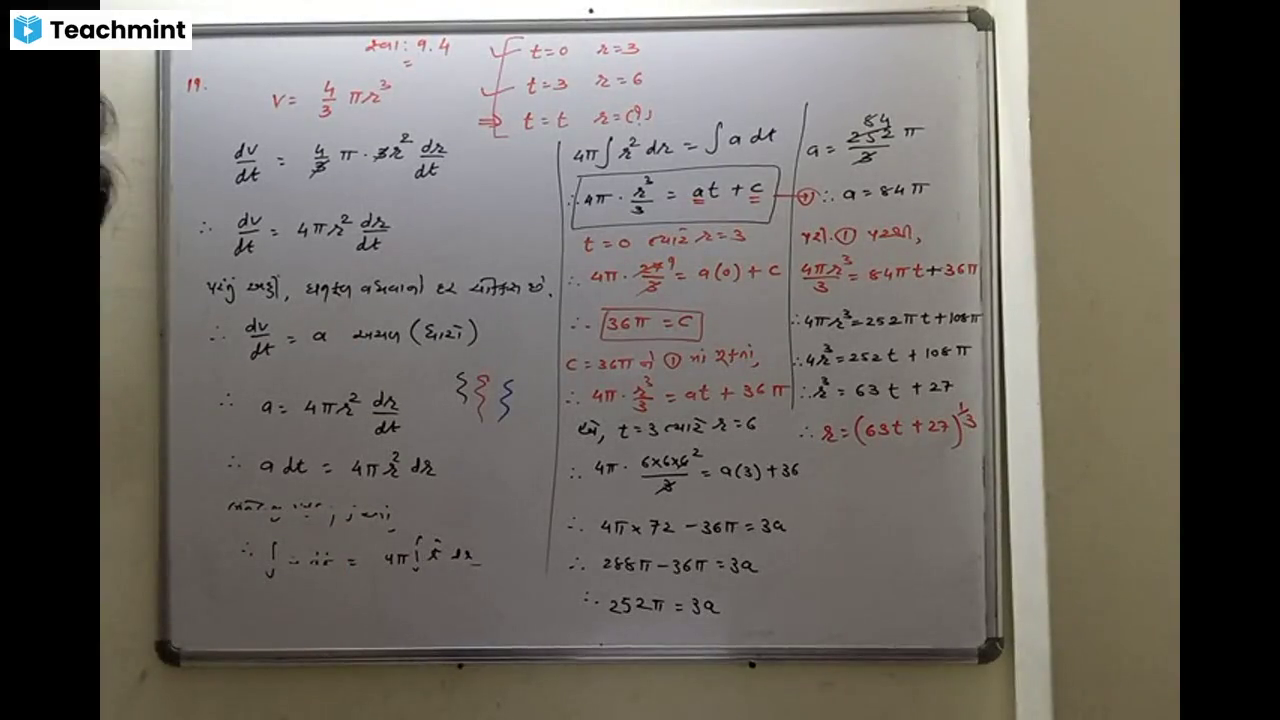 Teachmint
સ્વા: 9.4
=
19.
V = 4/3 πr³
t=0 r=3
t=3 r=6
⇒ t=t r=(?)
dv/dt = 4/3 π · 3r² dr/dt
∴ dv/dt = 4πr² dr/dt
પરંતુ અહીં, ઘનફળ વધવાનો દર
∴ dv/dt = a અચળ (ધારો)
∴ a = 4πr² dr/dt
∴ a dt = 4πr² dr
∴ ∫ = 4π∫ dr
4π∫r² dr = ∫a dt
∴ 4π · r³/3 = at + c → ①
t=0 ત્યારે r=3
∴ 4π · 27/3 9 = a(0) + c
∴ 36π = c
c = 36π ને ① માં
∴ 4π · r³/3 = at + 36π
t=3 ત્યારે r=6
∴ 4π · 6x6x6/3 2 = a(3) + 36
∴ 4π x 72 - 36π = 3a
∴ 288π - 36π = 3a
∴ 252π = 3a
a = 252/3 84 π
∴ a = 84π
① પરથી,
4πr³/3 = 84πt + 36π
∴ 4πr³ = 252πt + 108π
∴ 4r³ = 252t + 108π
∴ r³ = 63t + 27
∴ r = (63t + 27)^1/3